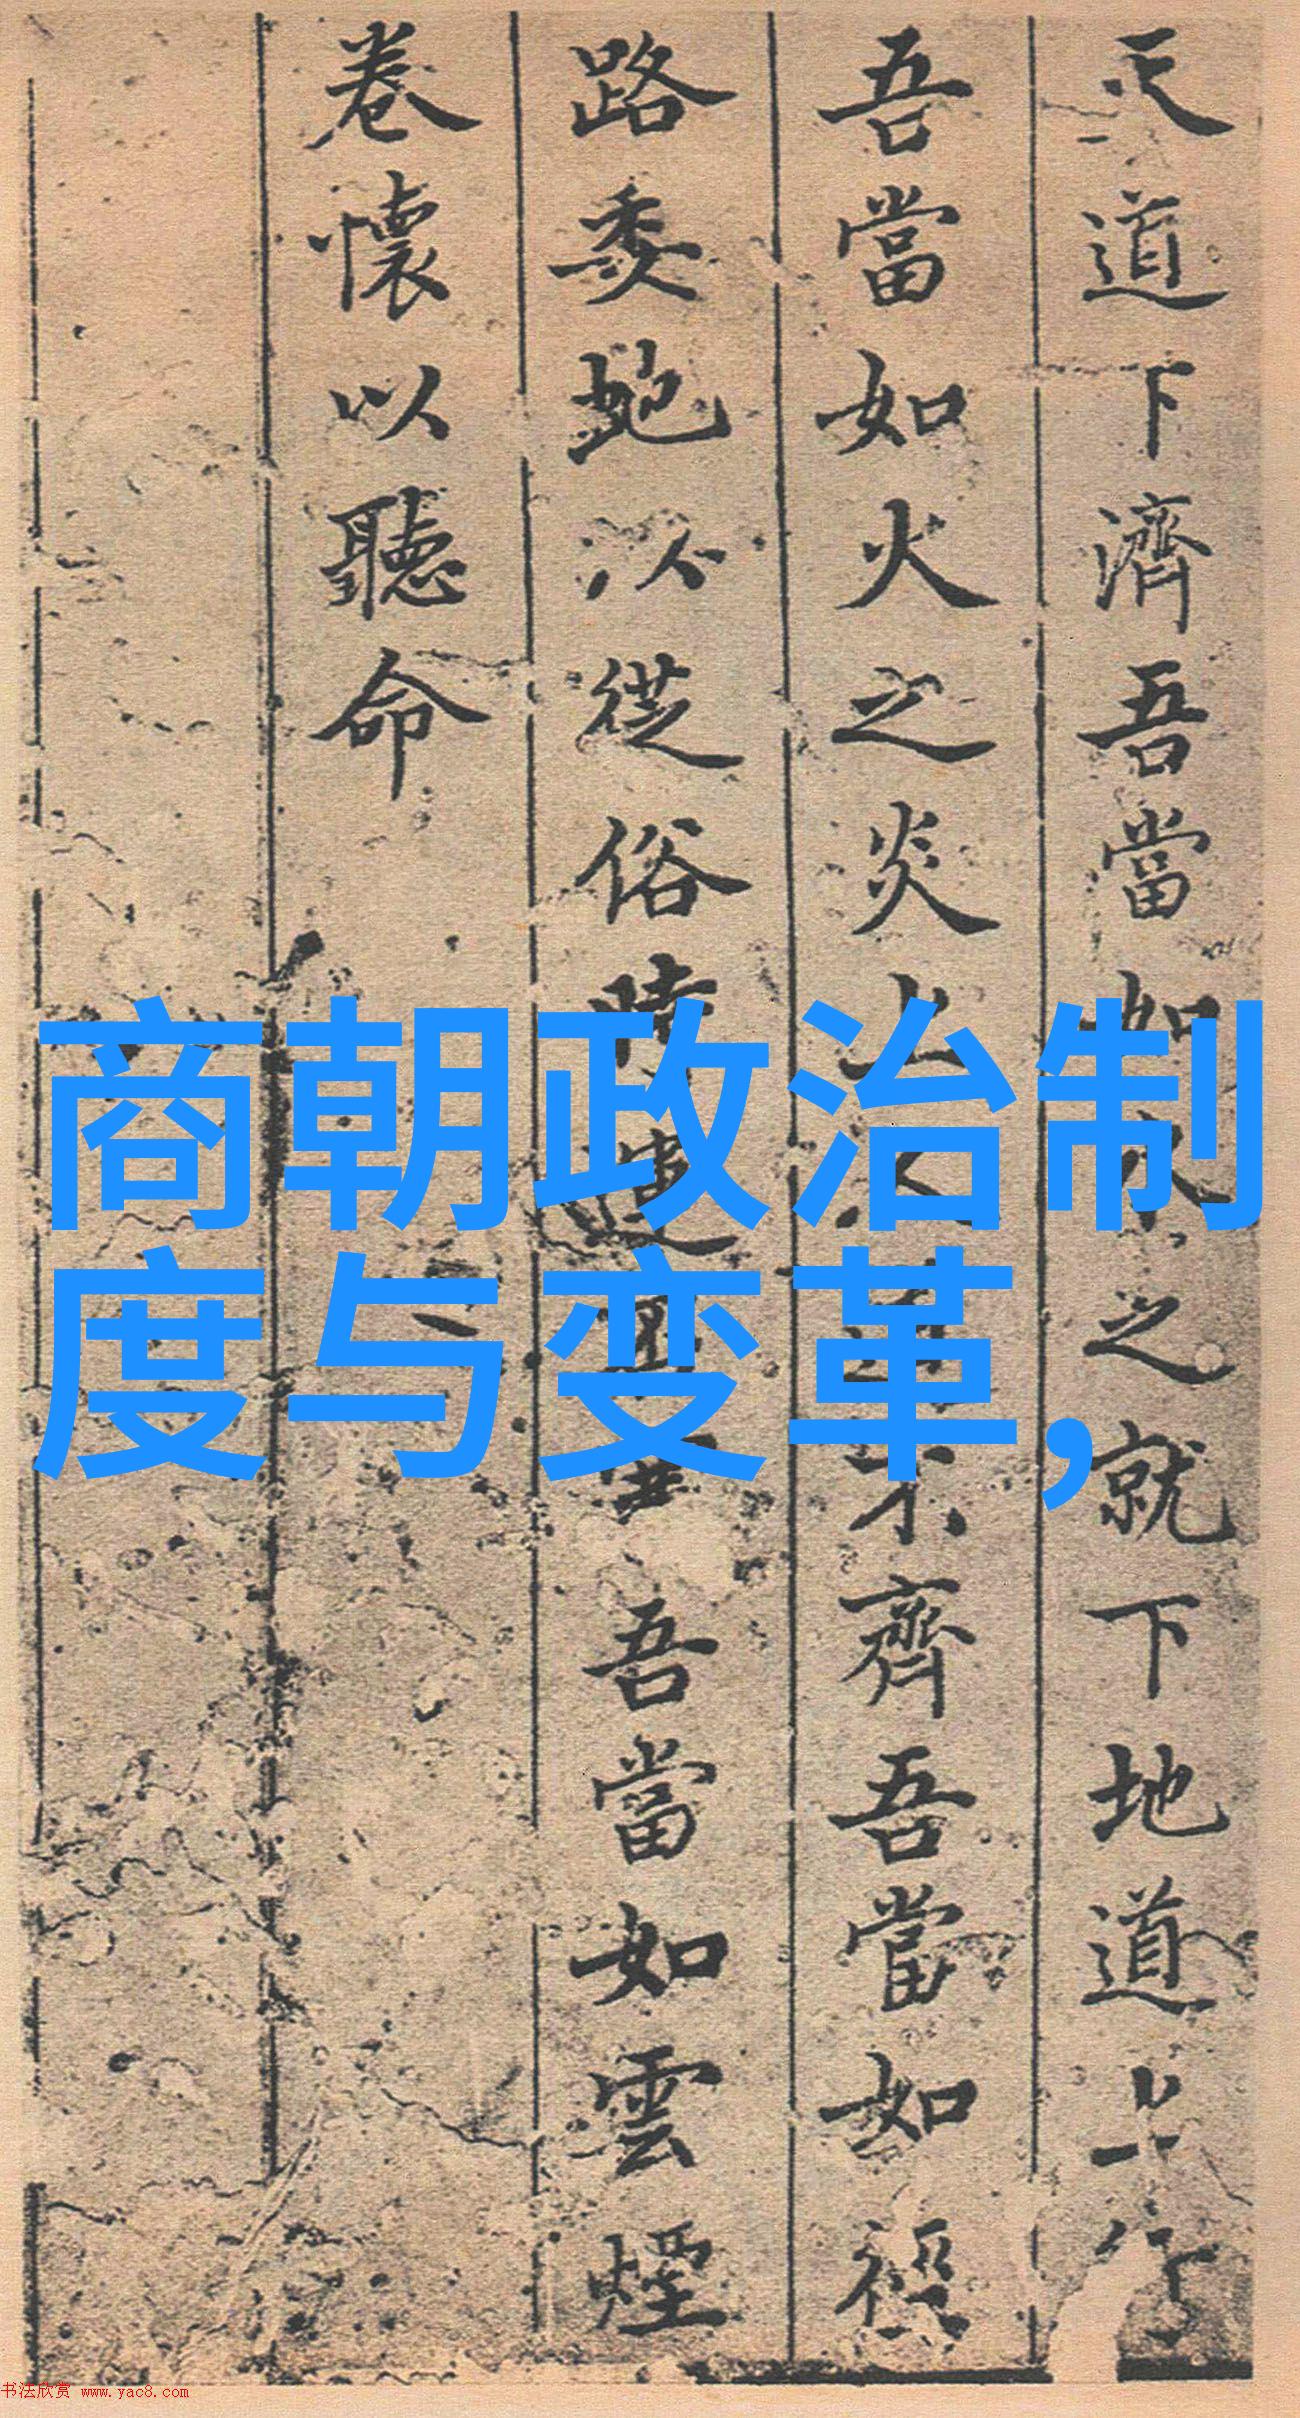 天道下濟吾當如之就下地道上行
吾當如火之炎上不齊吾當如徑
路委蛇以從俗時運吾當如雲煙
卷懷以聽命
商朝政治制
度与变革,
书法欣赏 www.yac8.com